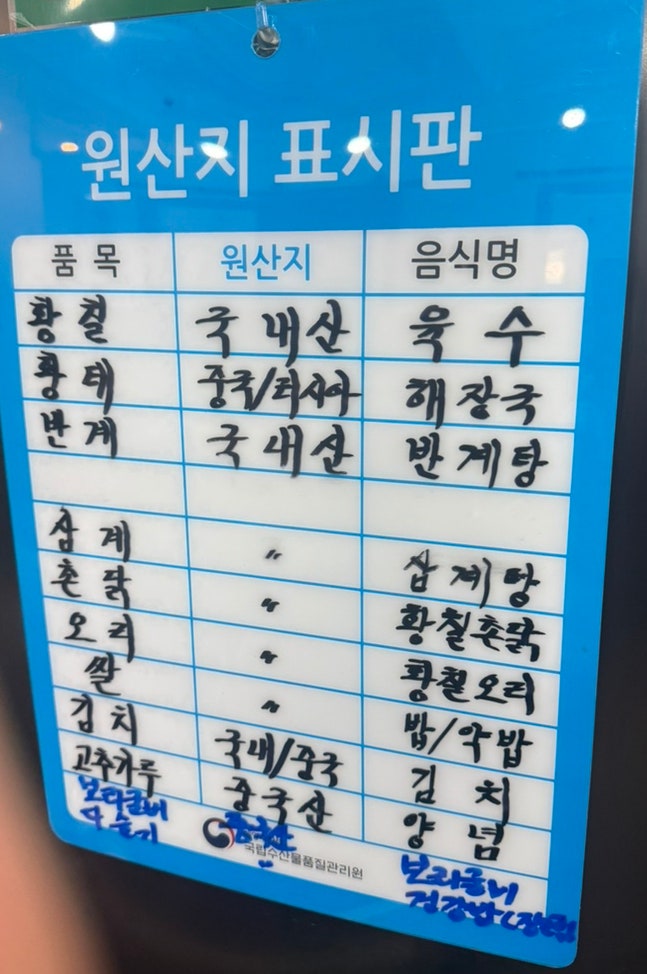 원산지 표시판
품 목 원산지 음식명
황 칠 국 내산 육 수
황 태 중국/러시아 해 장국
반 계 국 내산 반 계탕
삼 계 〃 삼 계 탕
촌 닭 〃 황칠촌닭
오 리 〃 황칠오리
쌀 〃 밥/약밥
김 치 국내/중국 김 치
고추가루 중국산 양 념
국립수산물품질관리원